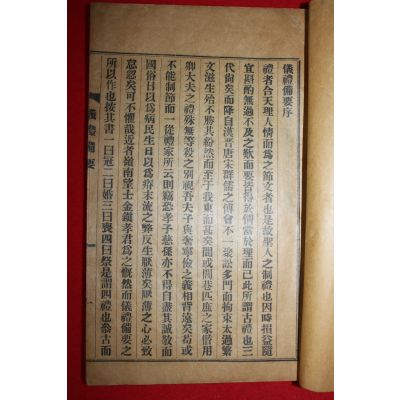 儀禮備要序
禮者合天理人情而爲之節文者也是故聖人之制禮也因時損益隨
宜斟酌無過不及之歎而要皆得於情當於理而已此所謂古禮也三
代尙矣而降自漢晋唐宋群儒之傅會不一聚訟多門而拘束太過繁
文滋生殆不勝其紛然而至于我東而甚矣閭或閭巷匹庶之家僭用
卿大夫之禮殊無等殺之別視吾夫子與奢寧儉之義相背遠矣苟或
不能制節而一從禮家所云則竊恐孝子慈孫亦不得自盡其誠敬而
國俗日以爲病民生日以爲瘠末流之弊反生厭薄矣厭薄之心必致
怠忽矣可不懼哉近者嶺南望士金鎭孝君爲之慨然而儀禮備要之
所以作也按其書一曰冠二曰婚三曰喪四曰祭是謂四禮也叅古而
儀禮備要